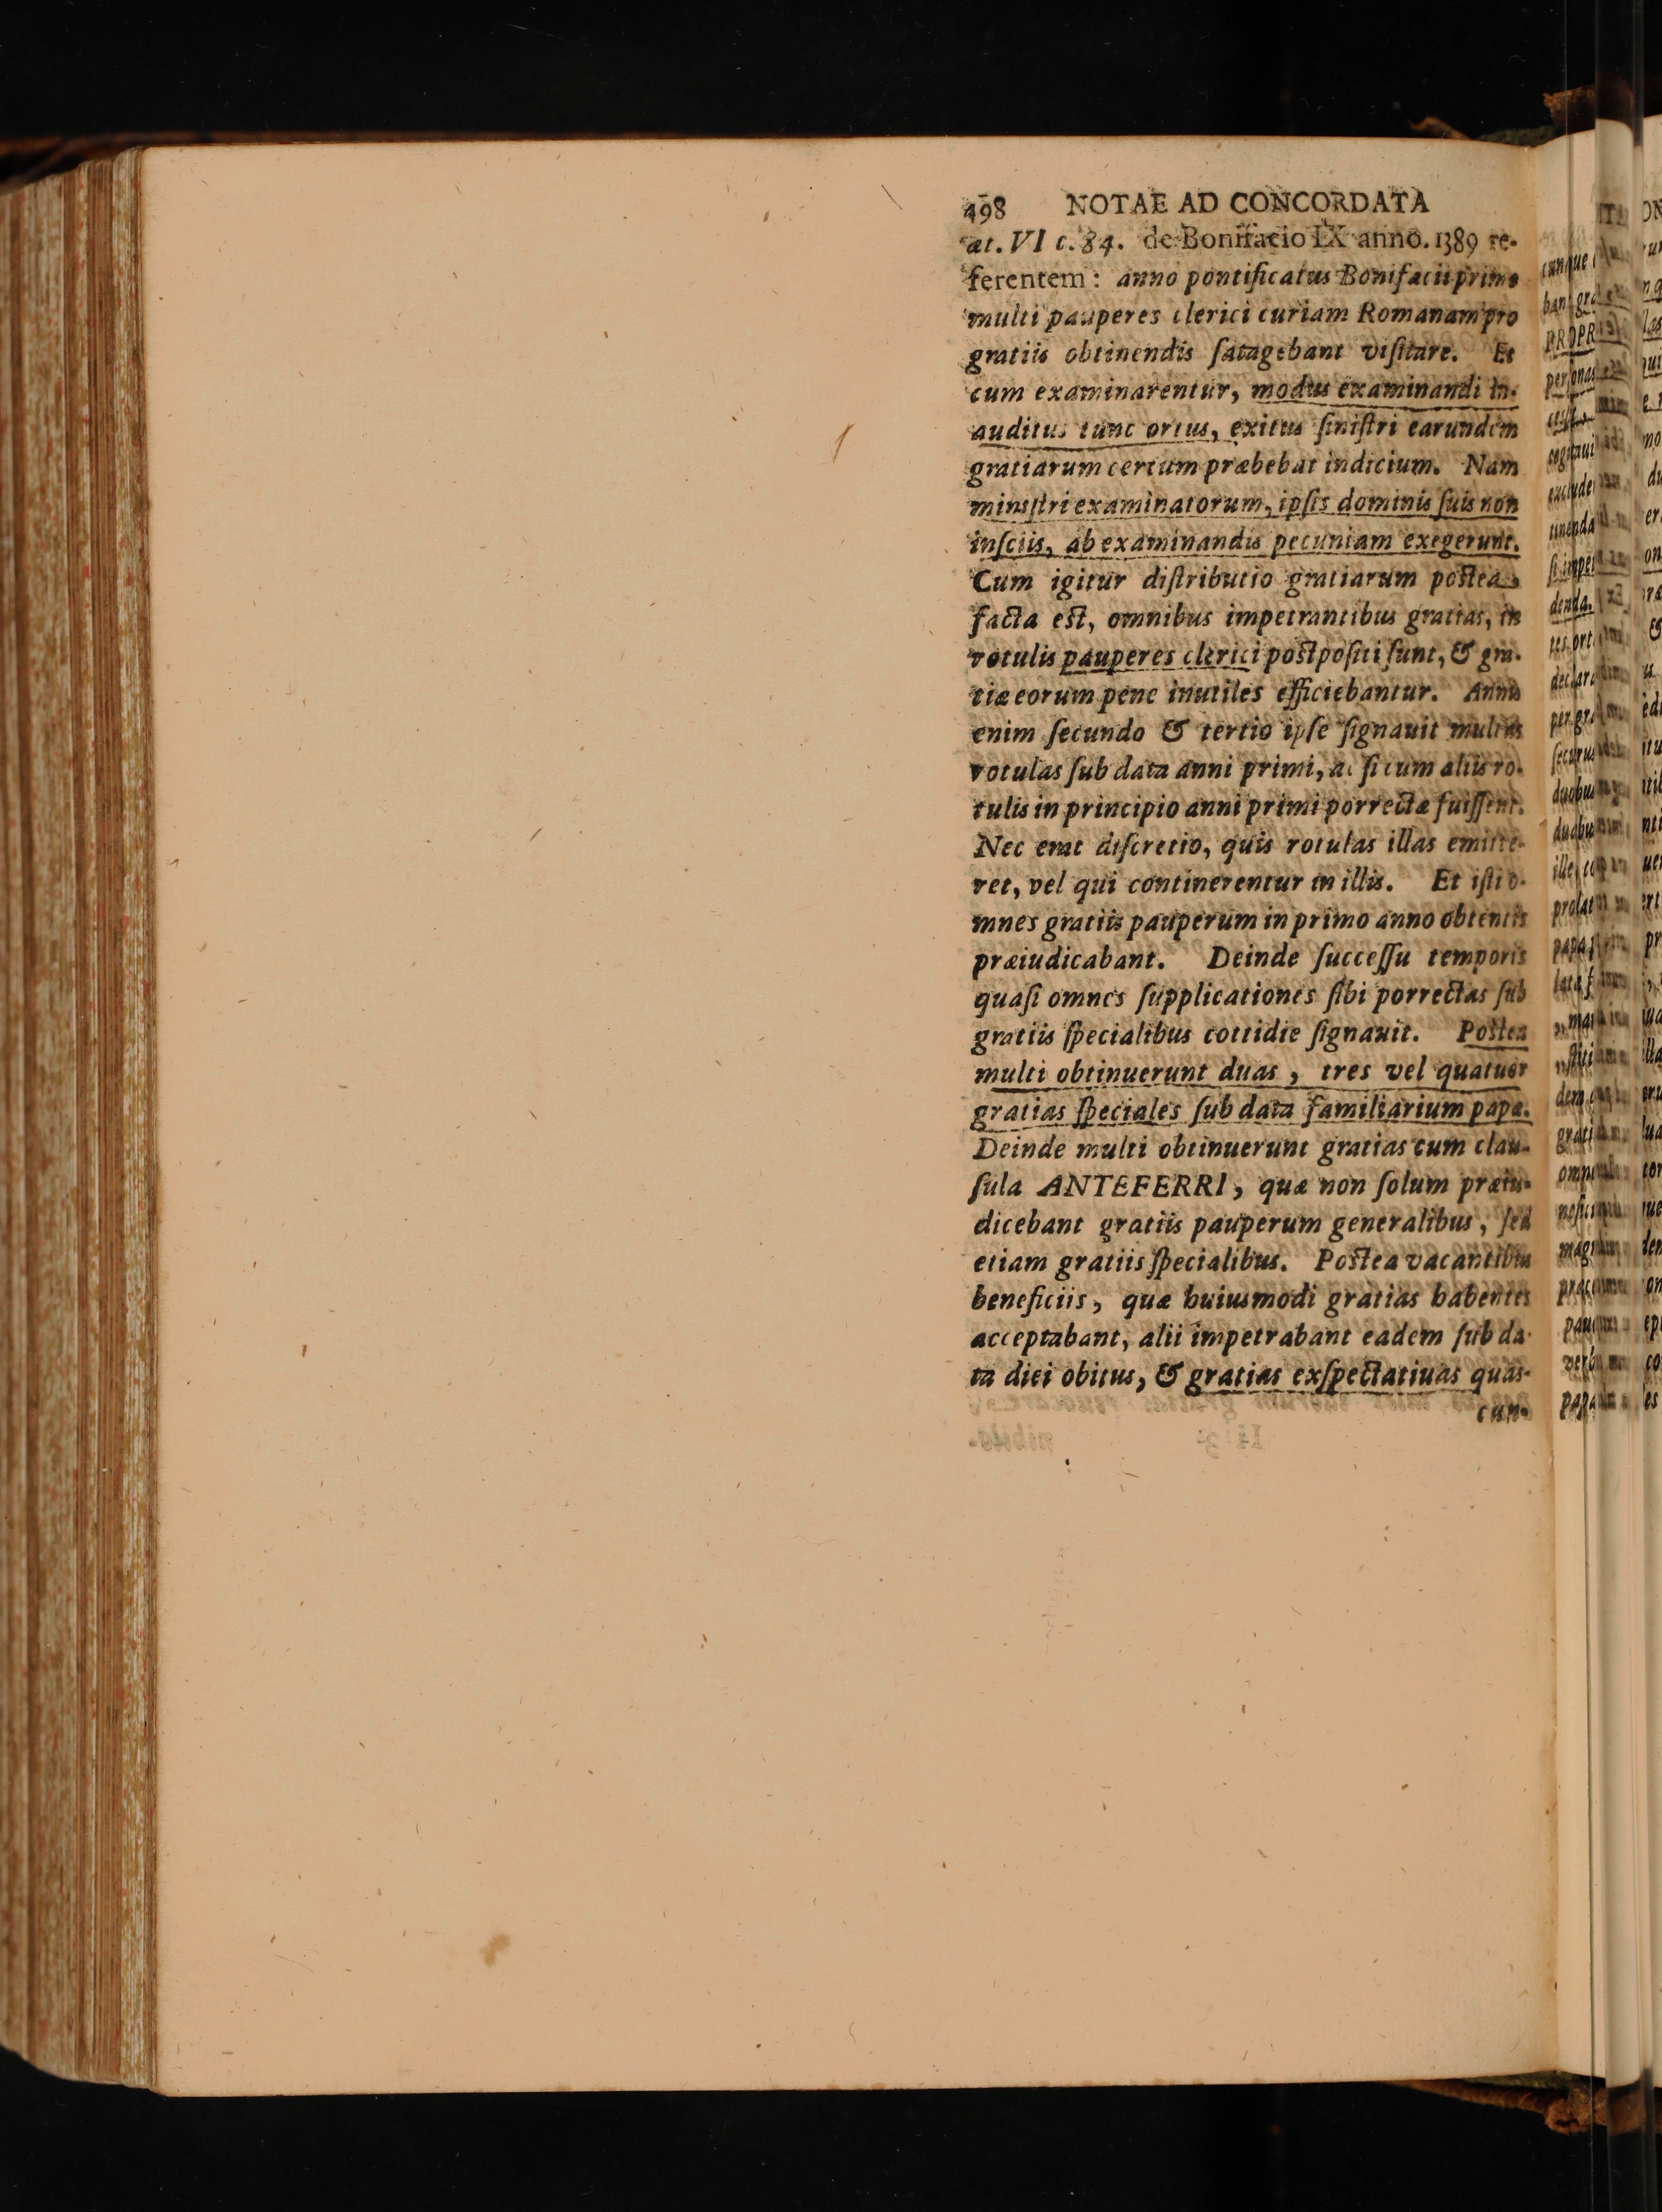 498 NOTAE AD CONCORDATA
æt. VI c. 84. de Bonifacio IX anno. 1389 re-
ferentem: anno pontificatus Bonifacii primo
multi pauperes clerici curiam Romanam pro
gratiis obtinendis ſatagebant viſitare. Et
cum examinarentur, modus examinandi in-
auditus tunc ortus, exitus ſiniſtri earundem
gratiarum certum præbebat indicium. Nam
miniſtri examinatorum, ipſis dominis ſuis non
inſciis, ab examinandis pecuniam exegerunt.
Cum igitur diſtributio gratiarum poſtea
facta eſt, omnibus impetrantibus gratias, in
rotulis pauperes clerici poſtpoſiti ſunt, & gra-
tiæ eorum pene inutiles efficiebantur. Anno
enim ſecundo & tertio ipſe ſignauit multas
rotulas ſub data anni primi, ac ſi cum aliis ro-
tulis in principio anni primi porrectæ fuiſſent.
Nec erat diſcretio, quis rotulas illas emitte-
ret, vel qui continerentur in illis. Et iſti o-
mnes gratiis pauperum in primo anno obtentis
præiudicabant. Deinde ſucceſſu temporis
quaſi omnes ſupplicationes ſibi porrectas ſub
gratiis ſpecialibus cottidie ſignauit. Poſtea
multi obtinuerunt duas, tres vel quatuor
gratias ſpeciales ſub data familiarium papæ.
Deinde multi obtinuerunt gratias cum clau-
ſula ANTEFERRI, quæ non ſolum præiu-
dicebant gratiis pauperum generalibus, ſed
etiam gratiis ſpecialibus. Poſtea vacantibus
beneficiis, quæ huiusmodi gratias habentes
acceptabant, alii impetrabant eadem ſub da-
ta diei obitus, & gratias exſpectatiuas quas-
cun-